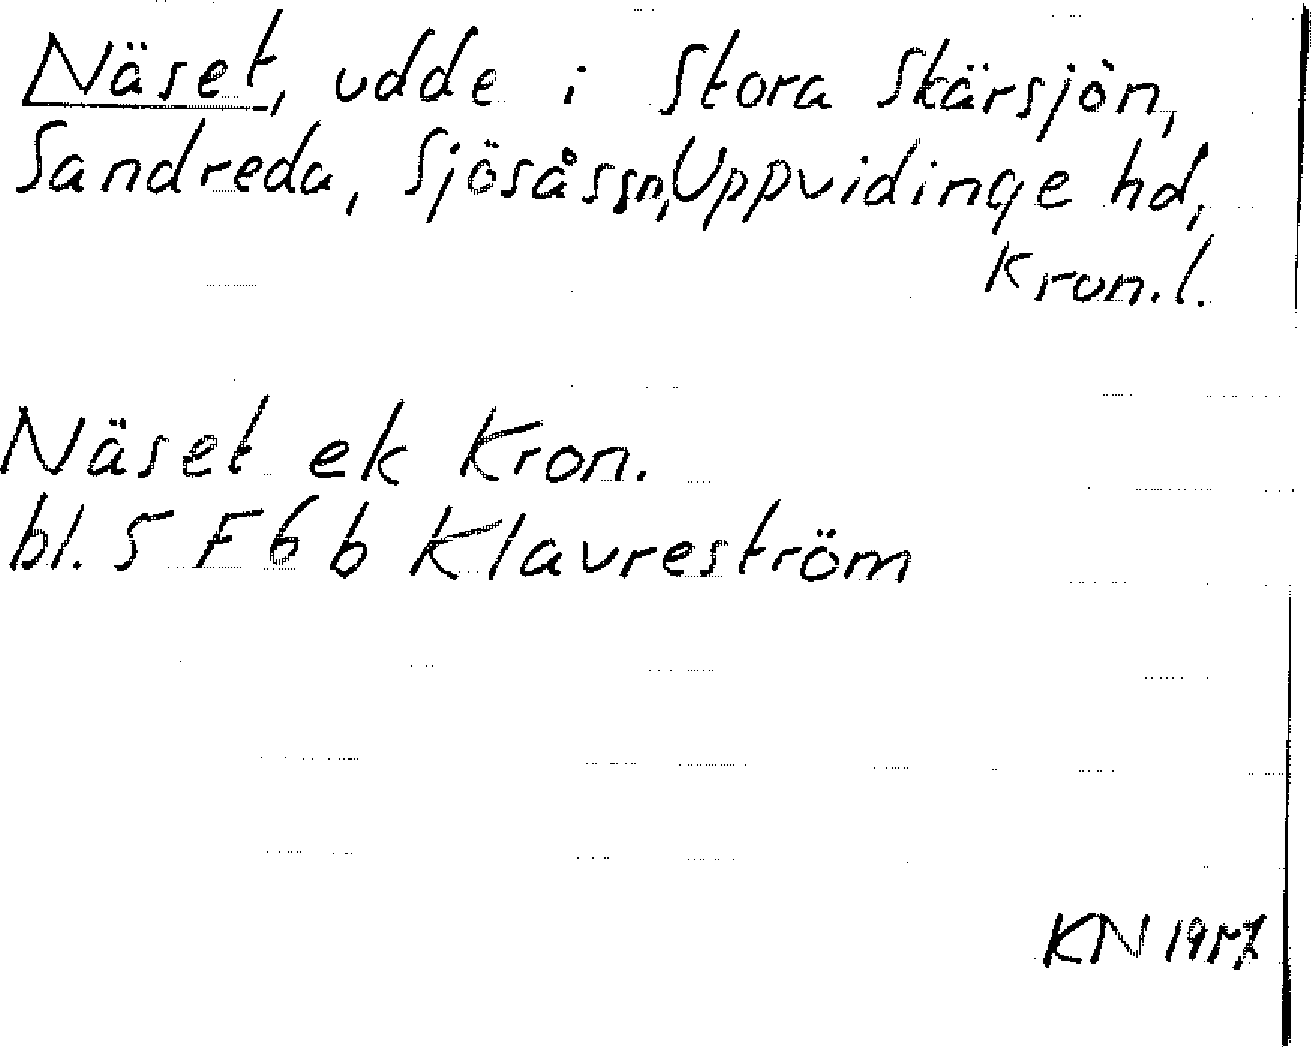 Näset, udde i Stora Skärsjön,
Sandreda, Sjösås sn, Uppvidinge hd,
Kron.l.
Näset ek Kron.
bl. 5 F 6 b Klavreström
KN 1957